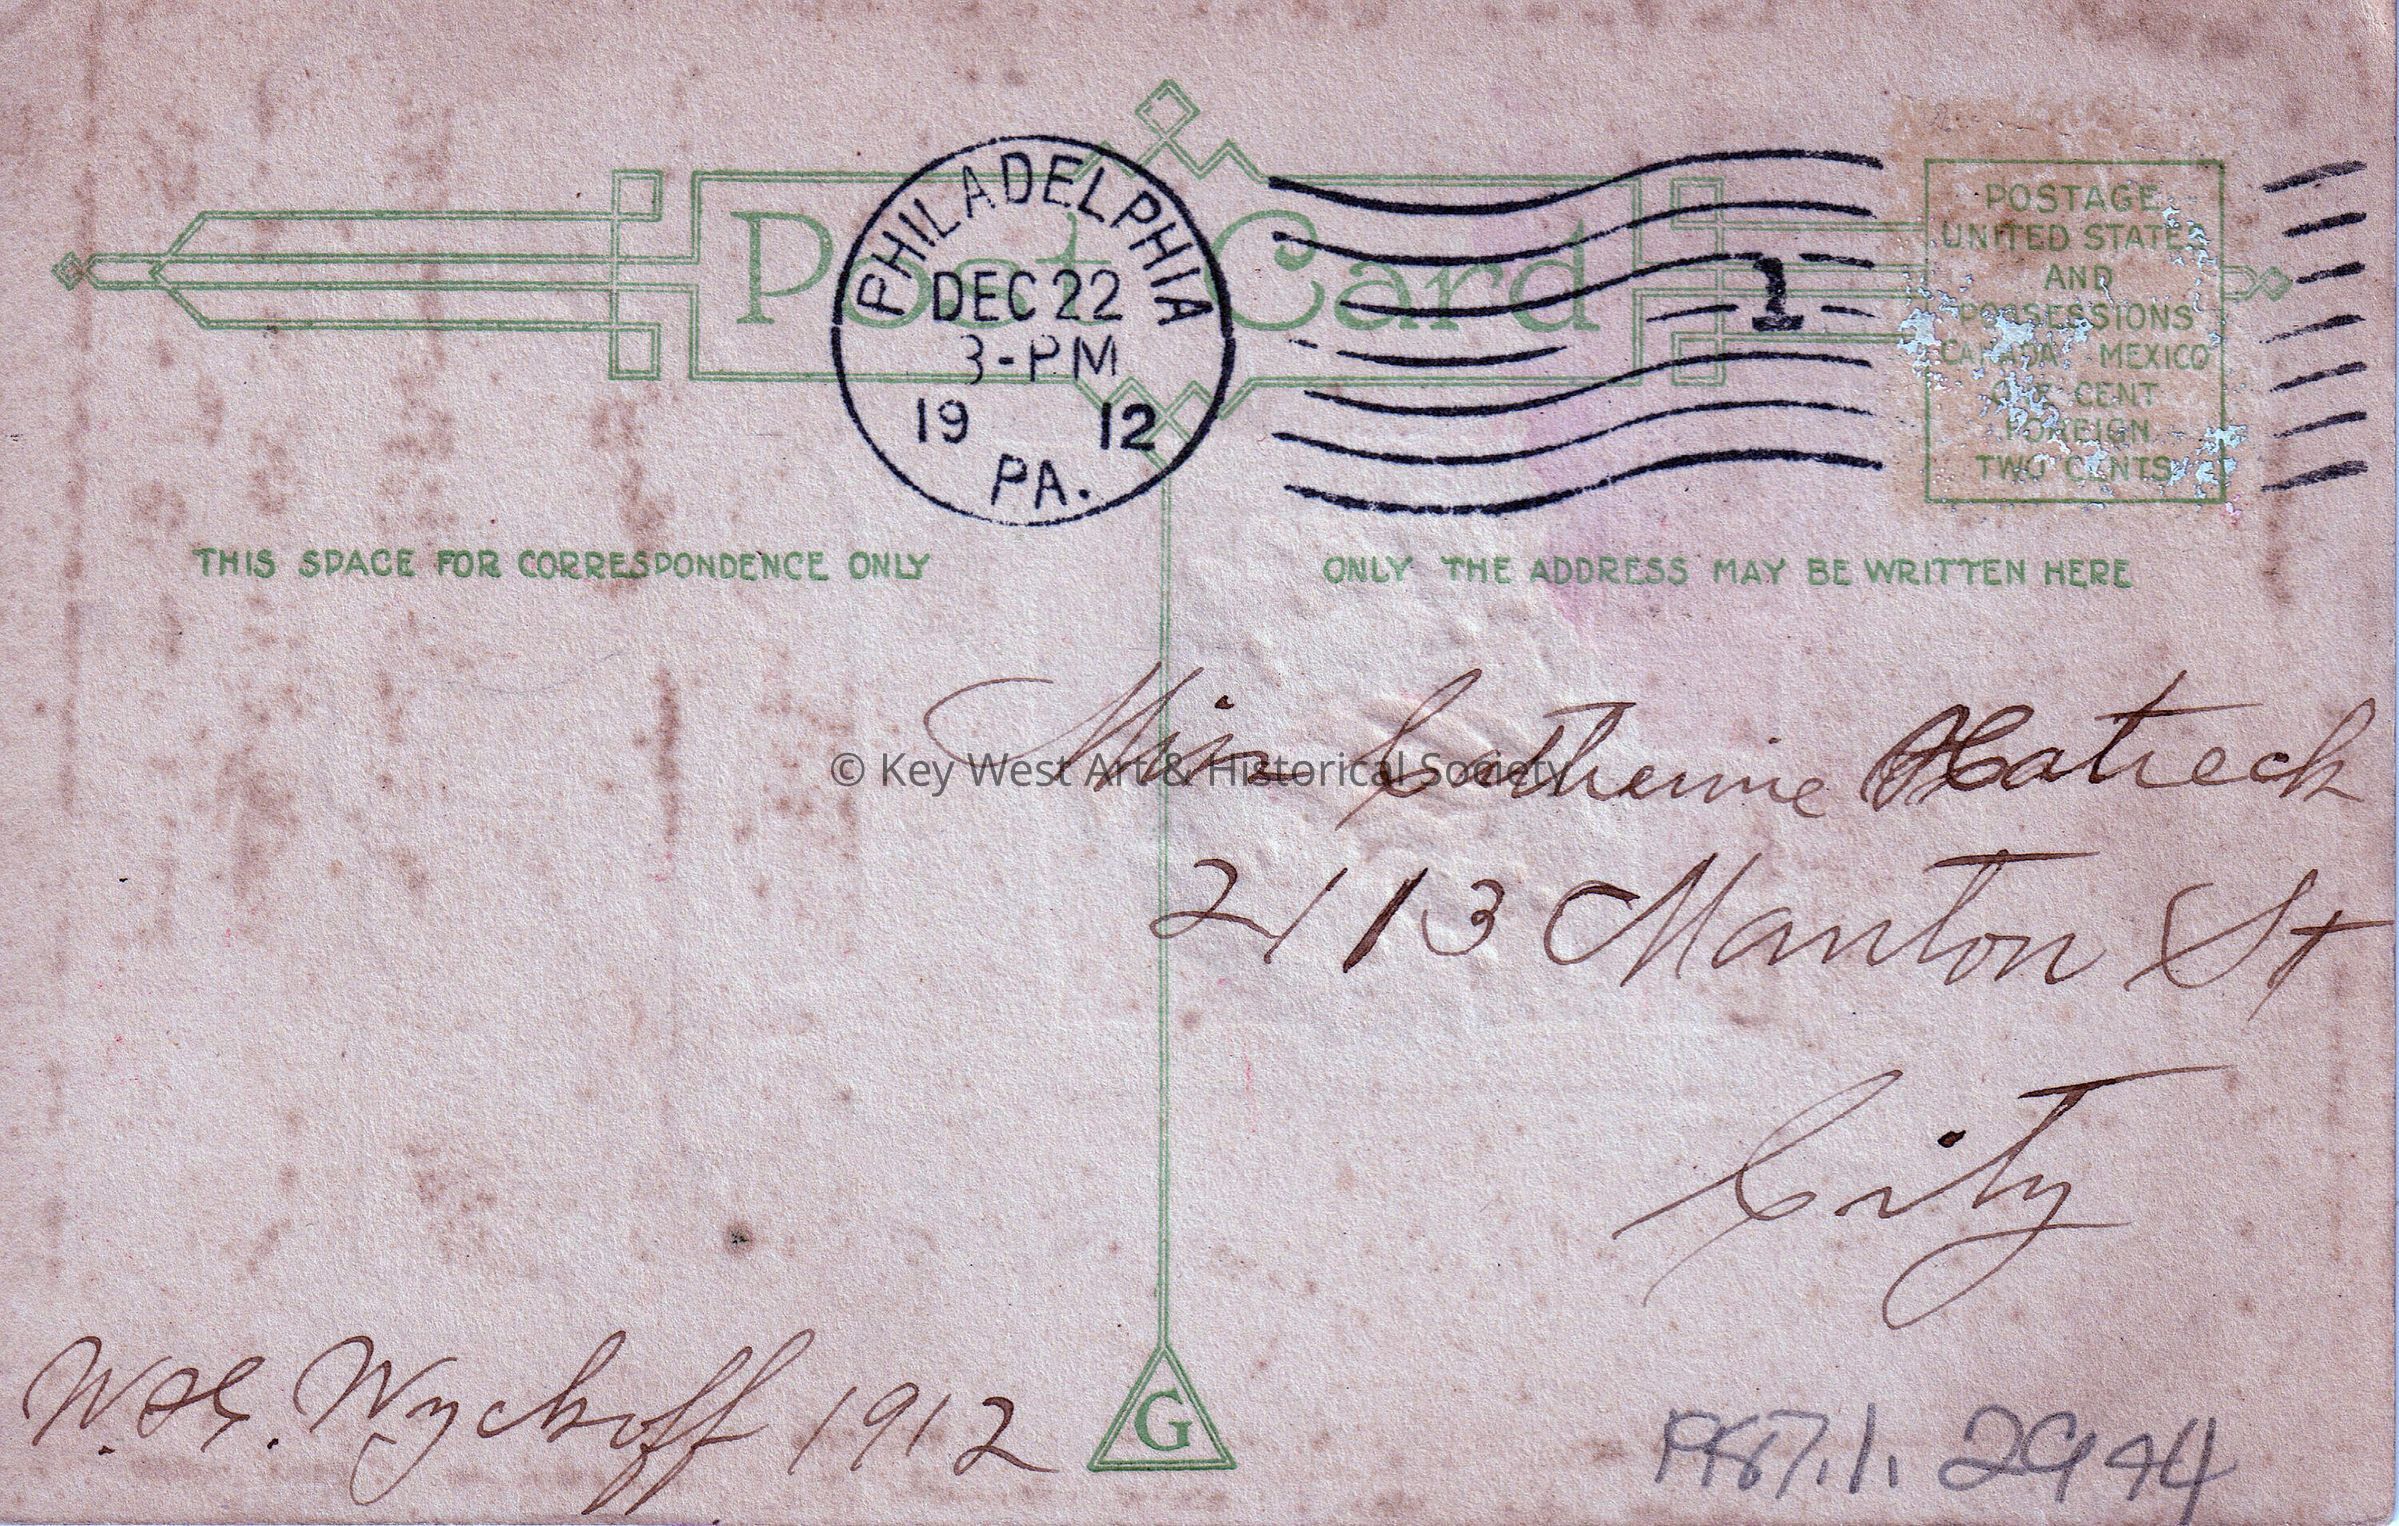 Post Card
PHILADELPHIA
DEC 22
3-PM
19 12
PA.
1
POSTAGE
UNITED STATES
AND
POSSESSIONS
CANADA MEXICO
ONE CENT
FOREIGN
TWO CENTS
THIS SPACE FOR CORRESPONDENCE ONLY
ONLY THE ADDRESS MAY BE WRITTEN HERE
Miss Catherine
© Key West Art & Historical Society
2113 Manton St
City
W. H. Wyckoff 1912
G
1987.1.2994